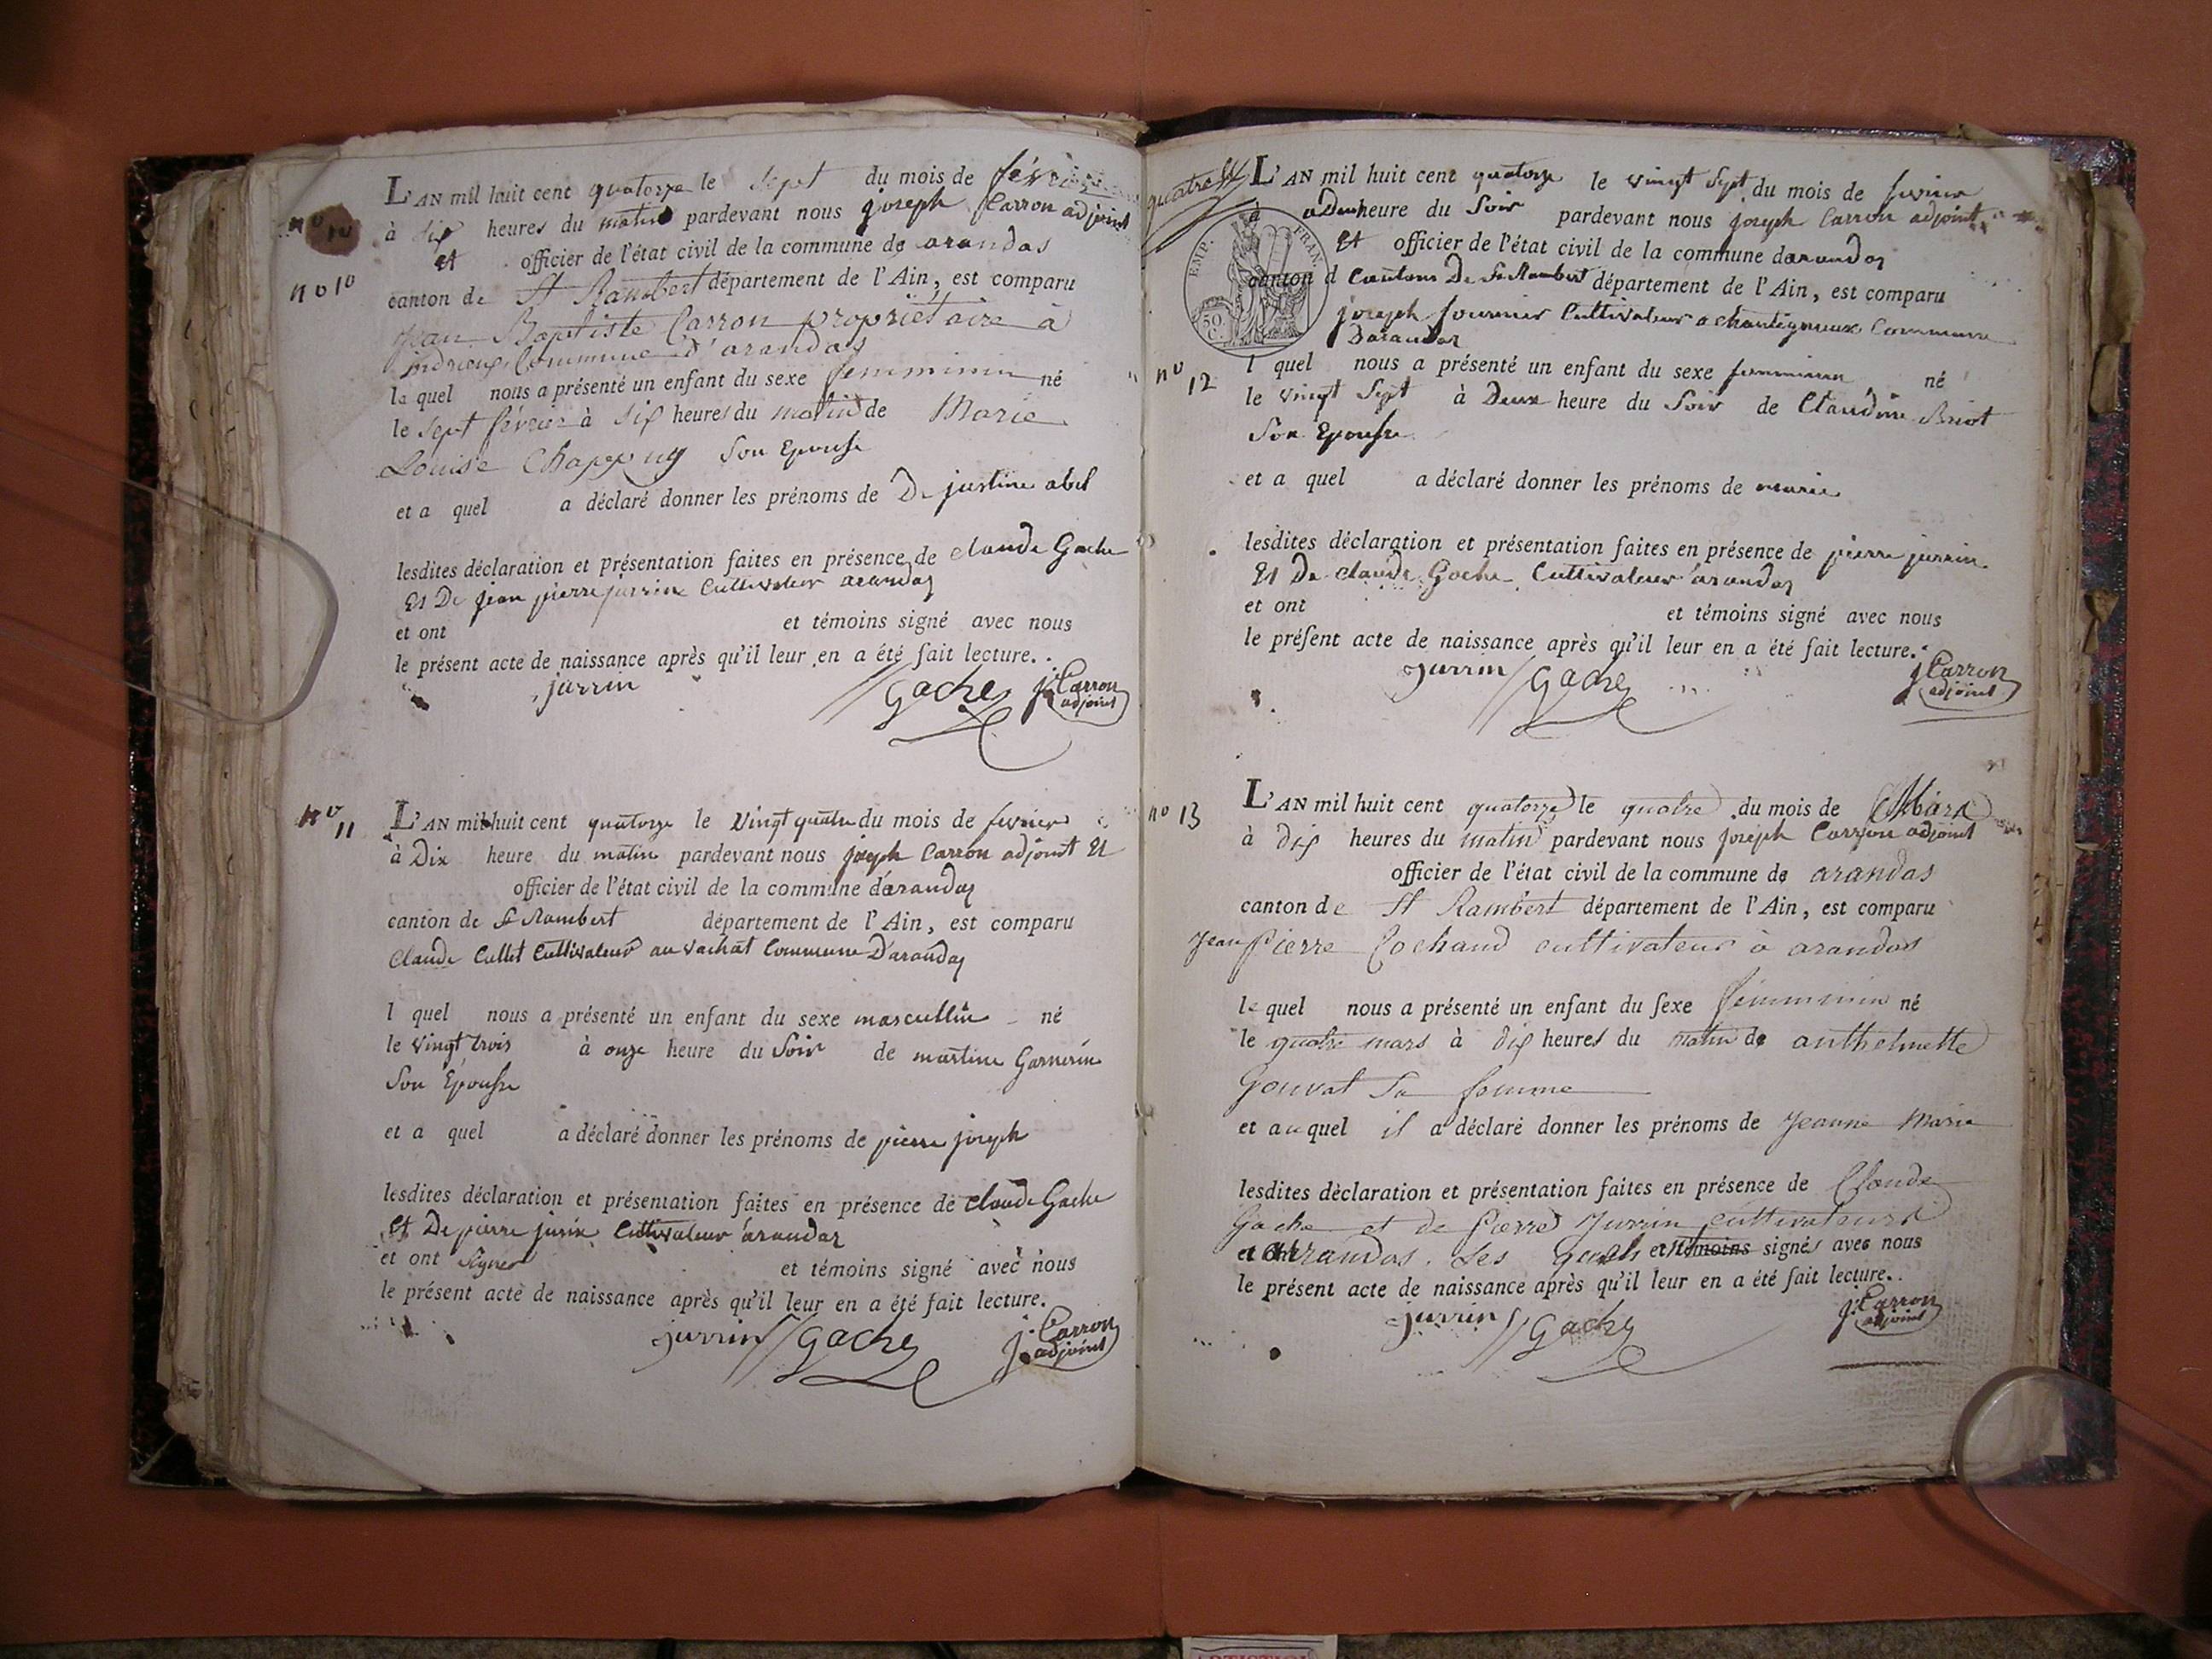 n° 10
n° 10
L'AN mil huit cent quatorze le sept du mois de février
à dix heures du matin pardevant nous joseph Carron adjoint
et officier de l'état civil de la commune de arandas
canton de St Rambert département de l'Ain, est comparu
jean Baptiste Carron propriétaire à
indrieux Commune d'arandas
le quel nous a présenté un enfant du sexe femminin né
le sept février à six heures du matin de Marie
Louise Chappuy son Epouse
et a quel a déclaré donner les prénoms de De justine abel
lesdites déclaration et présentation faites en présence de claude Gache
Et De jean pierre jurrin Cultivateur arandas
et ont et témoins signé avec nous
le présent acte de naissance après qu'il leur en a été fait lecture.
jurrin Gache J. Carron
adjoint
n° 11
L'AN mil huit cent quatorze le vingt quatre du mois de fevrier
à Dix heure du matin pardevant nous joseph Carron adjoint Et
officier de l'état civil de la commune d'arandas
canton de St Rambert département de l'Ain, est comparu
Claude Cullet Cultivateur au vachat Commune D'arandas
l quel nous a présenté un enfant du sexe mascullin né
le vingt trois à onze heure du Soir de martine Garnerin
Son Epouse
et a quel a déclaré donner les prénoms de pierre joseph
lesdites déclaration et présentation faites en présence de claude Gache
Et De pierre jurin Cultivateur arandas
et ont signer et témoins signé avec nous
le présent acte de naissance après qu'il leur en a été fait lecture.
jurrin Gache j. Carron
adjoint
quatre
EMP. FRAN.
50 C.
n° 12
L'AN mil huit cent quatorze le vingt sept du mois de fevrier
a Deux heure du Soir pardevant nous joseph Carron adjoint
Et officier de l'état civil de la commune darandas
canton d Cantons De St Rambert département de l'Ain, est comparu
joseph fournier Cultivateur a chantignieux Commune
Darandas
l quel nous a présenté un enfant du sexe femminin né
le vingt sept à Deux heure du Soir de Claudine Briot
Son Epouse
et a quel a déclaré donner les prénoms de marie
lesdites déclaration et présentation faites en présence de pierre jurrin
Et De claude Gache Cultivateur arandas
et ont et témoins signé avec nous
le présent acte de naissance après qu'il leur en a été fait lecture.
jurrin Gache J. Carron
adjoint
n° 13
L'AN mil huit cent quatorze le quatre du mois de Mars
à dix heures du matin pardevant nous joseph Carron adjoint
officier de l'état civil de la commune de arandas
canton de St Rambert département de l'Ain, est comparu
Jean Pierre Cochand cultivateur à arandas
le quel nous a présenté un enfant du sexe femminin né
le quatre mars à dix heures du matin de anthelmette
Gouvat sa femme
et au quel il a déclaré donner les prénoms de Jeanne Marie
lesdites déclaration et présentation faites en présence de Claude
Gache et de Pierre Jurrin cultivateurs
et ont arandas. Les quels et témoins signés avec nous
le présent acte de naissance après qu'il leur en a été fait lecture.
jurrin Gache j. Carron
adjoint